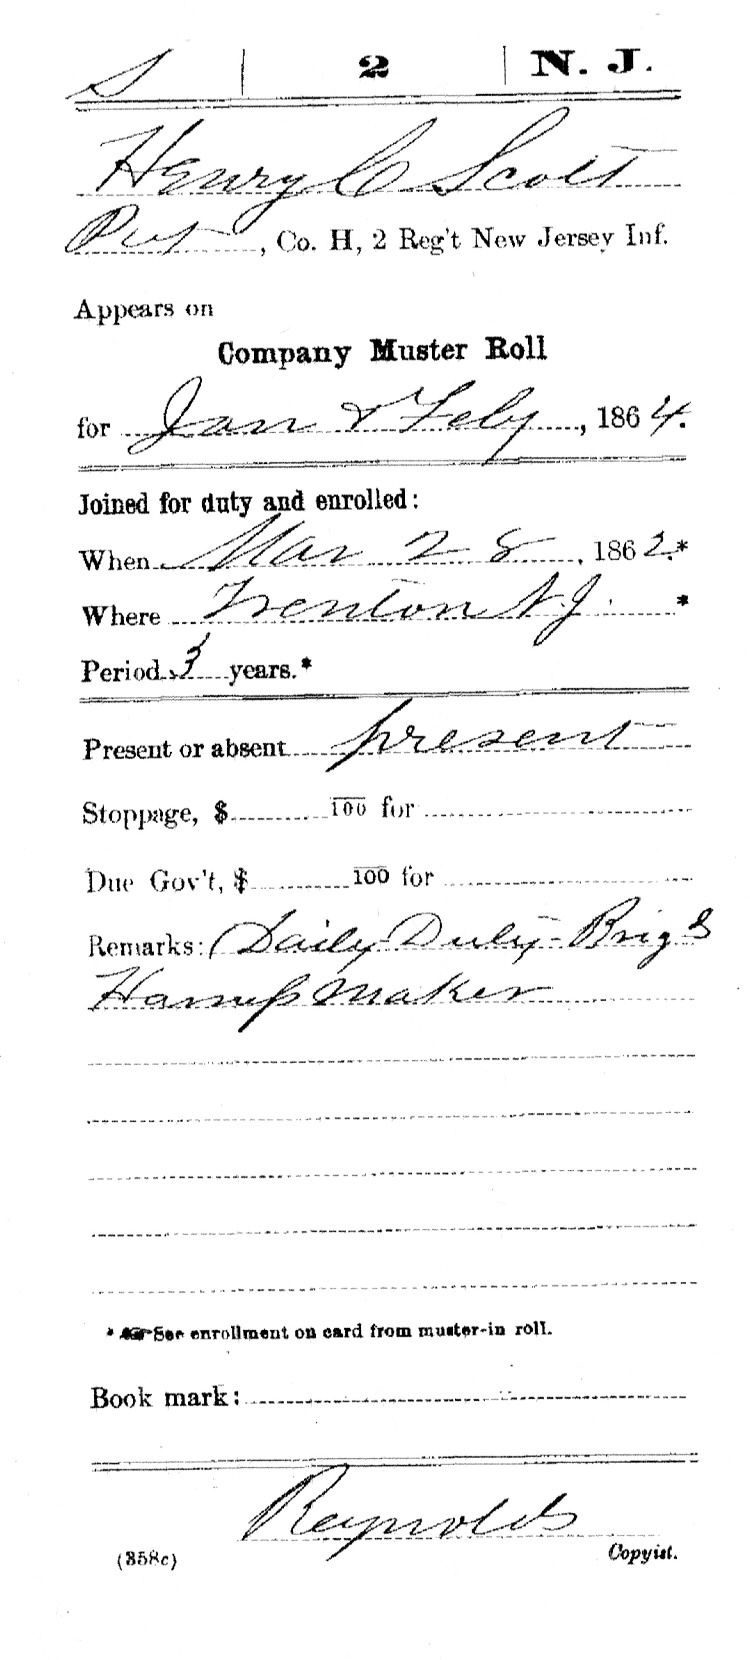 S | 2 | N. J.
Henry C Scott
Pvt, Co. H, 2 Reg't New Jersey Inf.
Appears on
Company Muster Roll
for Jan & Feby, 1864.
Joined for duty and enrolled:
When Mar 28, 1862.*
Where Trenton N.J. *
Period 3 years.*
Present or absent present
Stoppage, $ 100 for
Due Gov't, $ 100 for
Remarks: Daily Duty - Brig
Harness Maker
* ☞ See enrollment on card from muster-in roll.
Book mark:
Reynolds
(358c) Copyist.